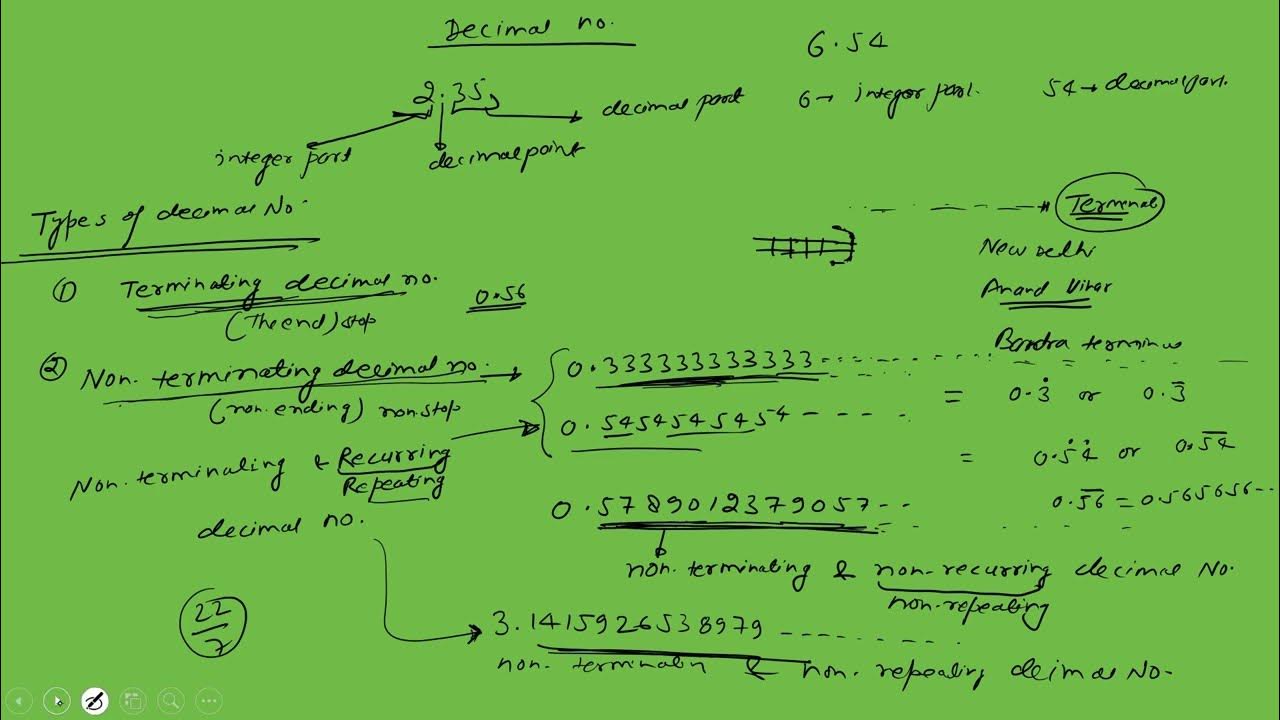 Decimal no.
6.54
2.35
decimal part
6 → integer part.
54 → decimal part.
integer part
decimal point
Types of decimal No.
Terminal
New Delhi
Anand Vihar
Bandra terminus
① Terminating decimal no.
0.56
(The end) stop
② Non. terminating decimal no.
(non. ending) nonstop
0.333333333333-----
= 0.3̇ or 0.3̅
0.5454545454 - - - -
= 0.5̇4̇ or 0.5̅4̅
Non. terminating & Recurring
Repeating
decimal no.
0.5789012379057---
0.5̅6̅ = 0.565656---
non. terminating & non-recurring decimal No.
non-repeating
22/7
3.1415926538979 ----------
non. terminatin & non. repeating deimal No.